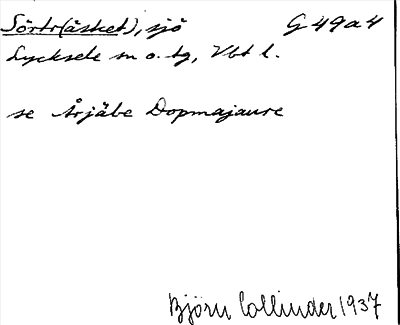 Sörtr(äsket), sjö G 49a4
Lycksele sn o. tg, Vbt l.
se Årjäbe Dopmajaure
Björn Collinder 1937